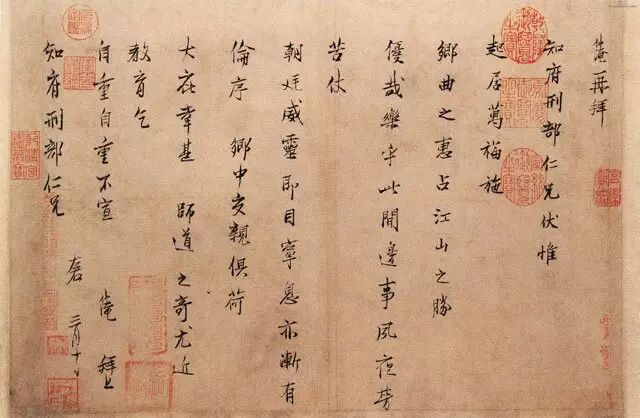 淹再拜
知府刑部仁兄伏惟
起居萬福施
鄉曲之惠占江山之勝
優哉樂乎此間邊事夙夜勞
苦仗
朝廷威靈即目寧息亦漸有
倫序 鄉中交親俱荷
大庇幸甚 師道之奇尤近
教育乞
自重自重不宣 淹拜上
知府刑部仁兄
三月十日